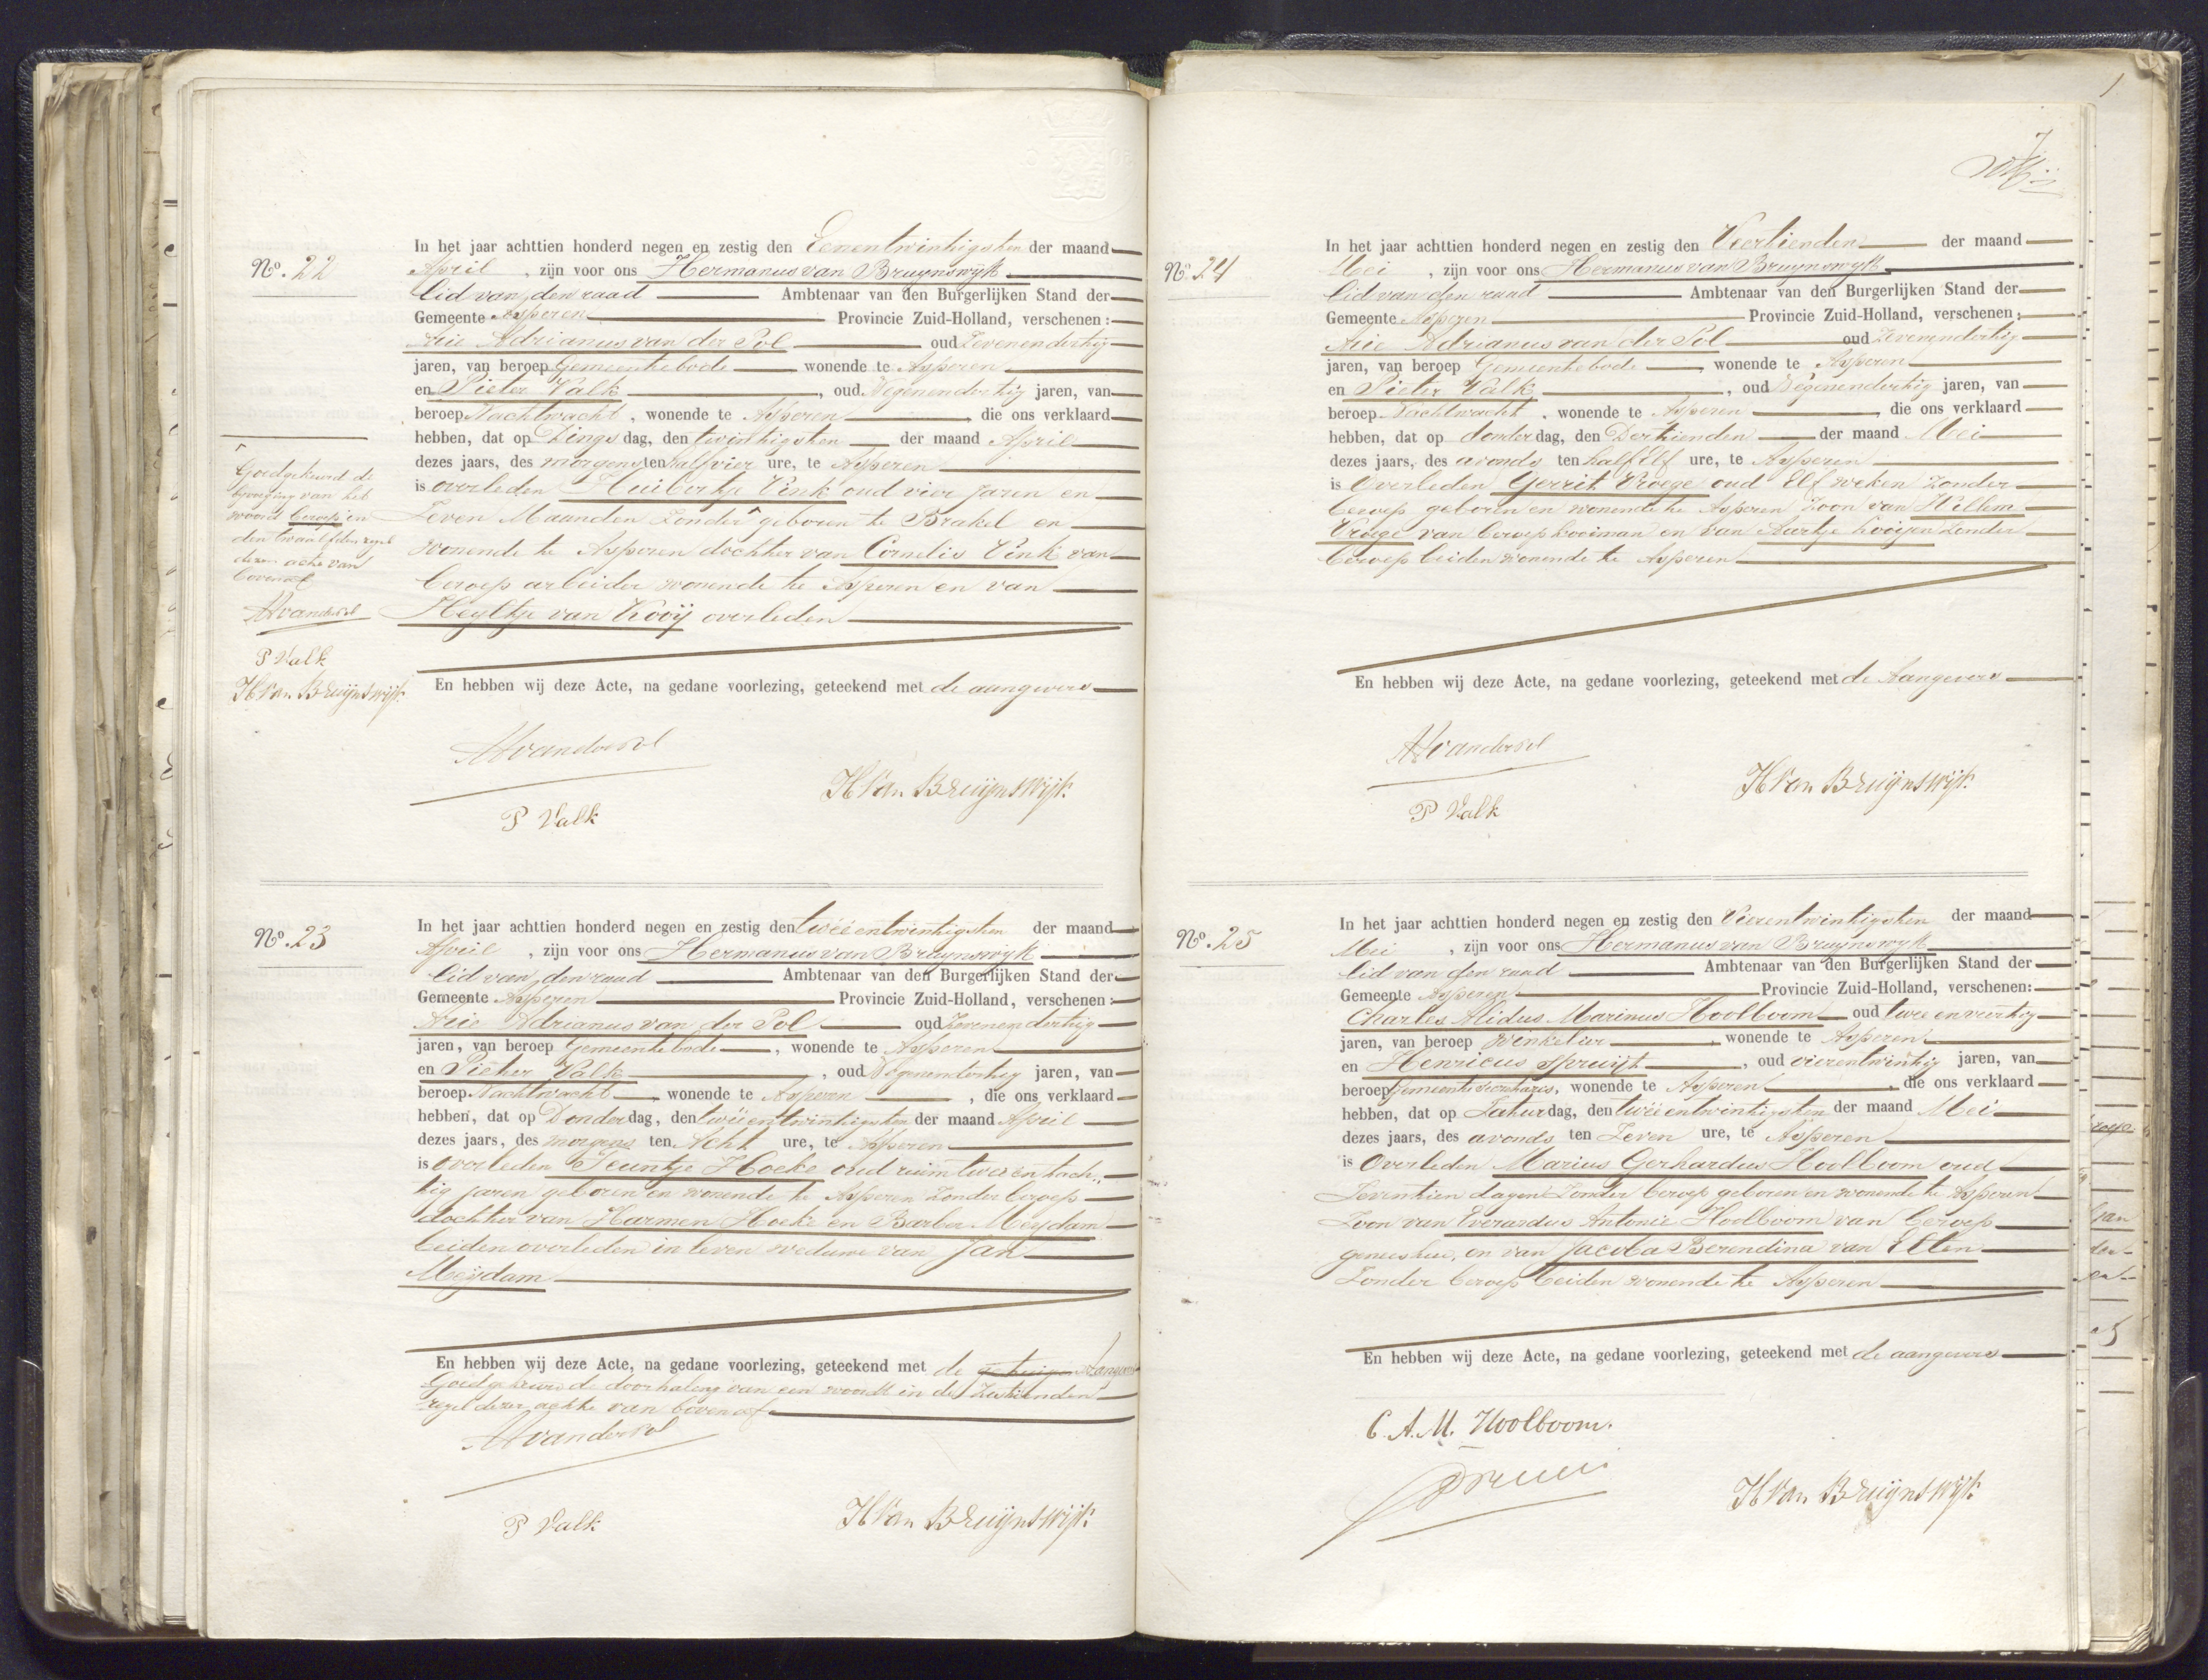 No. 22
In het jaar achttien honderd negen en zestig den Eenentwintigsten der maand
April , zijn voor ons Hermanus van Bruynswijk
lid van den raad Ambtenaar van den Burgerlijken Stand der
Gemeente Asperen Provincie Zuid-Holland, verschenen:
Arie Adrianus van der Pol oud Zevenendertig
jaren, van beroep Gemeentebode wonende te Asperen
en Pieter Valk , oud Negenendertig jaren, van
beroep Nachtwacht , wonende te Asperen , die ons verklaard
hebben, dat op Dings dag, den twintigsten der maand April
dezes jaars, des morgens ten half vier ure, te Asperen
is overleden Huibertje Vink oud vier jaren en
Zeven Maanden Zonder ^ geboren te Brakel en
wonende te Asperen dochter van Cornelis Vink van
beroep arbeider wonende te Asperen en van
Heyltje van Kooij overleden
En hebben wij deze Acte, na gedane voorlezing, geteekend met de aangevers
AAvanderPol
P Valk
H Van Bruijnswijk
^
Goedgekeurd de
bijvoeging van het
woord beroep in
den twaalfden regel
dezer acte van
bovenaf
AAvanderPol
P Valk
H Van Bruijnswijk
No. 23
In het jaar achttien honderd negen en zestig den tweeentwintigsten der maand
April , zijn voor ons Hermanus van Bruynswijk
lid van den raad Ambtenaar van den Burgerlijken Stand der
Gemeente Asperen Provincie Zuid-Holland, verschenen:
Arie Adrianus van der Pol oud Zevenendertig
jaren, van beroep Gemeentebode , wonende te Asperen
en Pieter Valk , oud Negenendertig jaren, van
beroep Nachtwacht , wonende te Asperen , die ons verklaard
hebben, dat op Donder dag, den tweeentwintigsten der maand April
dezes jaars, des morgens ten Acht ure, te Asperen
is overleden Teuntje Hoeke oud ruim twee en tach-
tig jaren geboren en wonende te Asperen Zonder beroep
dochter van Harmen Hoeke en Barber Meydam
beiden overleden in leven weduwe van Jan
Meijdam
En hebben wij deze Acte, na gedane voorlezing, geteekend met de getuigen Aangevers
Goedgekeurd de doorhaling van een woord in de Zestienden
regel dezer ackte van bovenaf
AAvanderPol
P Valk
H Van Bruijnswijk
7
No. 24
In het jaar achttien honderd negen en zestig den Veertienden der maand
Mei , zijn voor ons Hermanus van Bruynswyk
lid van den raad Ambtenaar van den Burgerlijken Stand der
Gemeente Asperen Provincie Zuid-Holland, verschenen:
Arie Adrianus van der Pol oud Zevenendertig
jaren, van beroep Gemeentebode , wonende te Asperen
en Pieter Valk , oud Negenendertig jaren, van
beroep Nachtwacht , wonende te Asperen , die ons verklaard
hebben, dat op donder dag, den Dertienden der maand Mei
dezes jaars, des avonds ten half Elf ure, te Asperen
is Overleden Gerrit Vroege oud Elf weken Zonder
beroep geboren en wonende te Asperen Zoon van Willem
Vroege van beroep kooiman en van Aartje Kooijen Zonder
beroep beiden wonende te Asperen
En hebben wij deze Acte, na gedane voorlezing, geteekend met de Aangevers
AAvanderPol
P Valk
H Van Bruijnswijk
No. 25
In het jaar achttien honderd negen en zestig den Vierentwintigsten der maand
Mei , zijn voor ons Hermanus van Bruynswyk
lid van den raad Ambtenaar van den Burgerlijken Stand der
Gemeente Asperen Provincie Zuid-Holland, verschenen:
Charles Alidus Marinus Hoolboom oud twee en veertig
jaren, van beroep Winkelier , wonende te Asperen
en Henricus Spruijt , oud vierentwintig jaren, van
beroep Gemeente Secretaris , wonende te Asperen , die ons verklaard
hebben, dat op Zatur dag, den tweeentwintigsten der maand Mei
dezes jaars, des avonds ten Zeven ure, te Asperen
is Overleden Marius Gerhardus Hoolboom oud
Zeventien dagen Zonder beroep geboren en wonende te Asperen
Zoon van Everardus Antonie Hoolboom van beroep
geneesheer, en van Jacoba Berendina van Elten
Zonder beroep beiden wonende te Asperen
En hebben wij deze Acte, na gedane voorlezing, geteekend met de aangevers
C. A. M. Hoolboom.
H Van Bruijnswijk